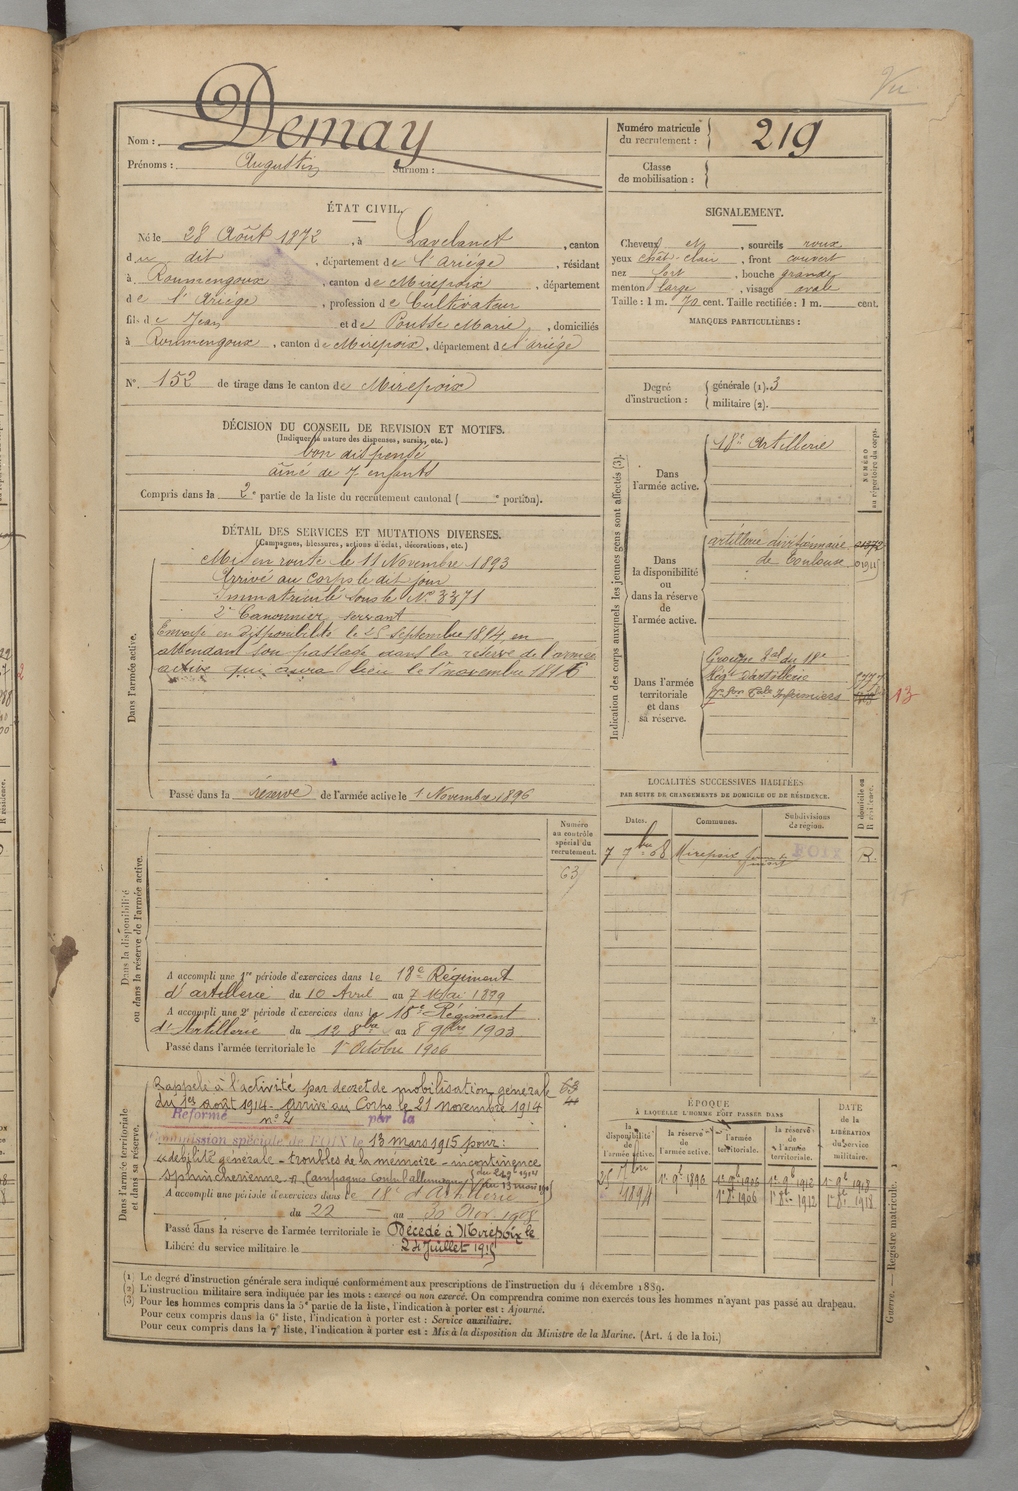 Vu
Nom : Demay
Prénoms : Augustin Surnom :
Numéro matricule du recrutement : 219
Classe de mobilisation :
ÉTAT CIVIL.
Né le 28 Août 1872, à Lavelanet, canton
du dit, département de l'Ariége, résidant
à Roumengoux, canton de Mirepoix, département
de l'Ariége, profession de Cultivateur
fils de Jean et de Pousse Marie, domiciliés
à Roumengoux, canton de Mirepoix, département de l'ariége
N° 152 de tirage dans le canton de Mirepoix
SIGNALEMENT.
Cheveux et, sourcils roux
yeux chât-clair, front couvert
nez fort, bouche grande
menton large, visage ovale
Taille : 1 m. 70 cent. Taille rectifiée : 1 m. cent.
MARQUES PARTICULIÈRES :
Degré d'instruction : générale (1). 3
militaire (2).
DÉCISION DU CONSEIL DE REVISION ET MOTIFS.
(Indiquer la nature des dispenses, sursis, etc.)
bon dispensé
aîné de 7 enfants
Compris dans la 2e partie de la liste du recrutement cantonal ( e portion).
DÉTAIL DES SERVICES ET MUTATIONS DIVERSES.
(Campagnes, blessures, actions d'éclat, décorations, etc.)
Dans l'armée active.
Mis en route le 11 Novembre 1893
Arrivé au corps le dit jour
Immatriculé sous le N° 3371
2e Canonnier servant
Envoyé en disponibilité le 25 Septembre 1894 en
attendant son passage dans la réserve de l'armée
active qui aura lieu le 1er novembre 1896
Passé dans la réserve de l'armée active le 1 Novembre 1896
Indication des corps auxquels les jeunes gens sont affectés (3).
NUMÉRO au répertoire du corps.
Dans l'armée active.
18e Artillerie
Dans la disponibilité ou dans la réserve de l'armée active.
artillerie divisionnaire
de Toulouse
Dans l'armée territoriale et dans sa réserve.
Groupe Bal du 18e
Régt d'artillerie
17e Son Tale Infirmiers
13
LOCALITÉS SUCCESSIVES HABITÉES
PAR SUITE DE CHANGEMENTS DE DOMICILE OU DE RÉSIDENCE.
Dates. Communes. Subdivisions de région. D domicile ou R résidence.
7 7bre 08 Mirepoix FOIX R.
Numéro au contrôle spécial du recrutement.
63
Dans la disponibilité ou dans la réserve de l'armée active.
A accompli une 1re période d'exercices dans le 18e Régiment
d'artillerie du 10 Avril au 7 Mai 1899
A accompli une 2e période d'exercices dans le 18e Régiment
d'Artillerie du 12 8bre au 8 9bre 1903
Passé dans l'armée territoriale le 1er Octobre 1906
Dans l'armée territoriale et dans sa réserve.
Rappelé à l'activité par decret de mobilisation générale
du 1er août 1914 - Arrivé au Corps le 21 novembre 1914
Réformé n° 2 par la
Commission spéciale de FOIX le 13 mars 1915 pour :
"débilité générale - troubles de la mémoire - incontinence
sphinchérienne". Campagnes contre l'allemagne du 21 9bre 1914 au 13 mars 1915
A accompli une période d'exercices dans le 18e d'Artillerie
du 22 au 30 Nov. 1908
Passé dans la réserve de l'armée territoriale le Décédé à Mirepoix le
Libéré du service militaire le 24 Juillet 1915
ÉPOQUE
À LAQUELLE L'HOMME DOIT PASSER DANS
DATE DE LA LIBÉRATION du service militaire.
la disponibilité de l'armée active. la réserve de l'armée active. l'armée territoriale. la réserve de l'armée territoriale.
25 7bre 1894 1er 9bre 1896 1er 9bre 1906 1er 9bre 1912 1er 9bre 1918
1er 8bre 1906 1er 8bre 1912 1er 8bre 1918
(1) Le degré d'instruction générale sera indiqué conformément aux prescriptions de l'instruction du 4 décembre 1889.
(2) L'instruction militaire sera indiquée par les mots : exercé ou non exercé. On comprendra comme non exercés tous les hommes n'ayant pas passé au drapeau.
(3) Pour les hommes compris dans la 5e partie de la liste, l'indication à porter est : Ajourné.
Pour ceux compris dans la 6e liste, l'indication à porter est : Service auxiliaire.
Pour ceux compris dans la 7e liste, l'indication à porter est : Mis à la disposition du Ministre de la Marine. (Art. 4 de la loi.)
Guerre. — Registre matricule.